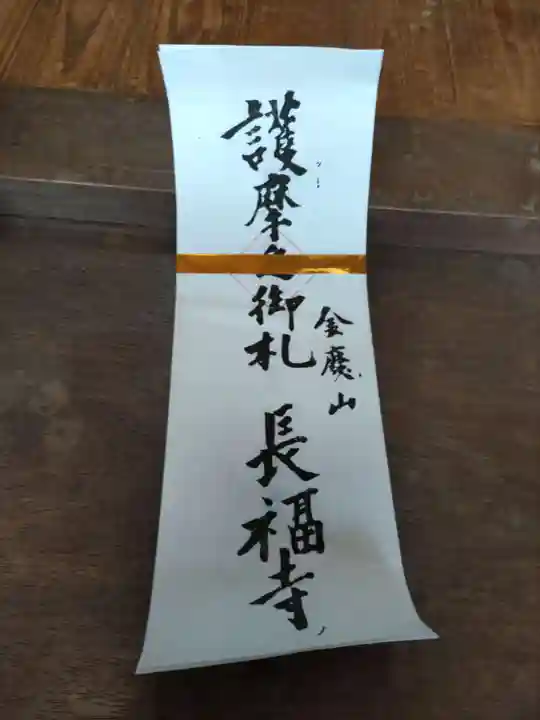 護摩之御札 長福寺
金慶山